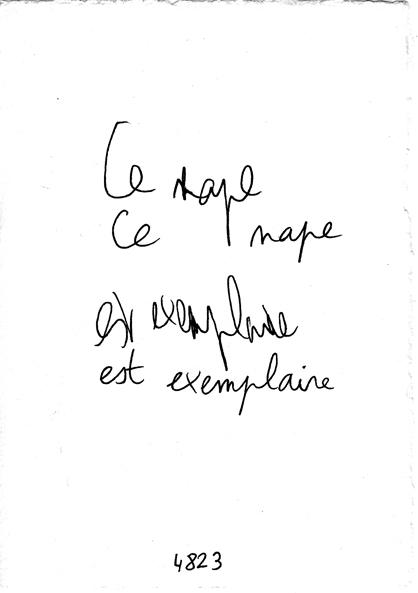 Ce nape
Ce nape
est exemplaire
est exemplaire
4823